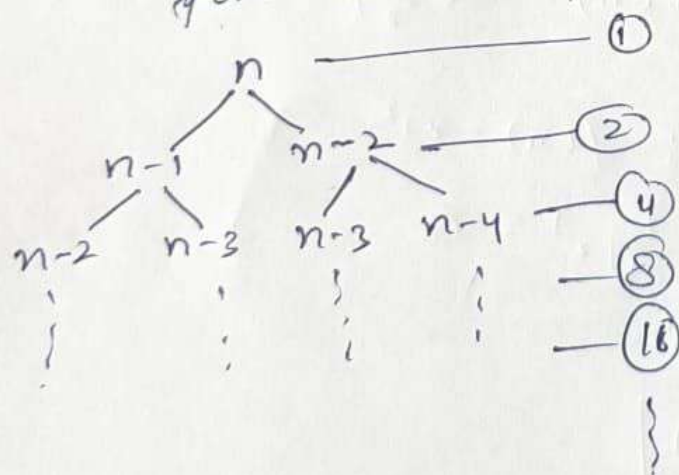 n ①
n-1 n-2 ②
n-2 n-3 n-3 n-4 ④
⑧
⑯